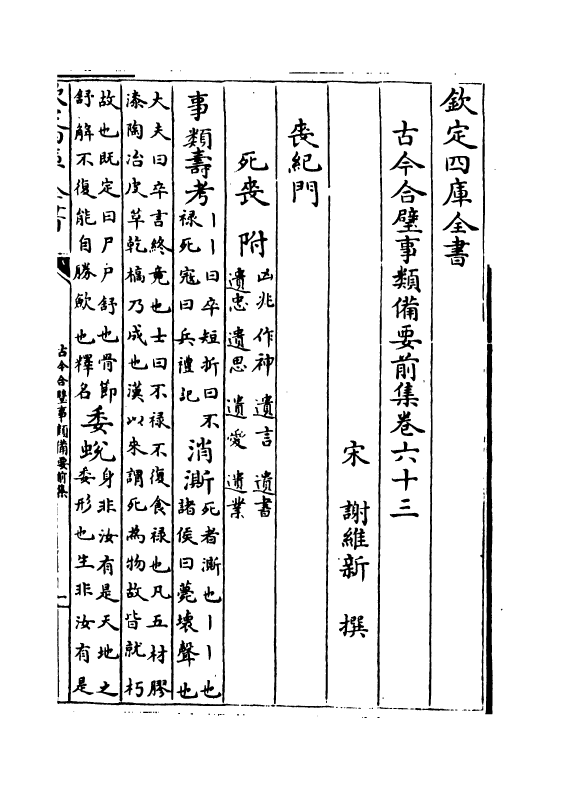 欽定四庫全書
古今合璧事類備要前集卷六十三
宋 謝維新 撰
喪紀門
死喪 附 凶兆 作神 遺言 遺書
遺忠 遺思 遺愛 遺業
事類壽考 丨丨曰卒短折曰不
祿死寇曰兵禮記 消澌 死者澌也丨丨也
諸侯曰薨壞聲也
大夫曰卒言終竟也士曰不祿不復食祿也凡五材膠
漆陶冶皮草乾槁乃成也漢以來謂死為物故皆就朽
故也既定曰尸尸舒也骨節
舒解不復能自勝歛也釋名 委蛻 身非汝有是天地之
委形也生非汝有是
古今合璧事類備要前集
一